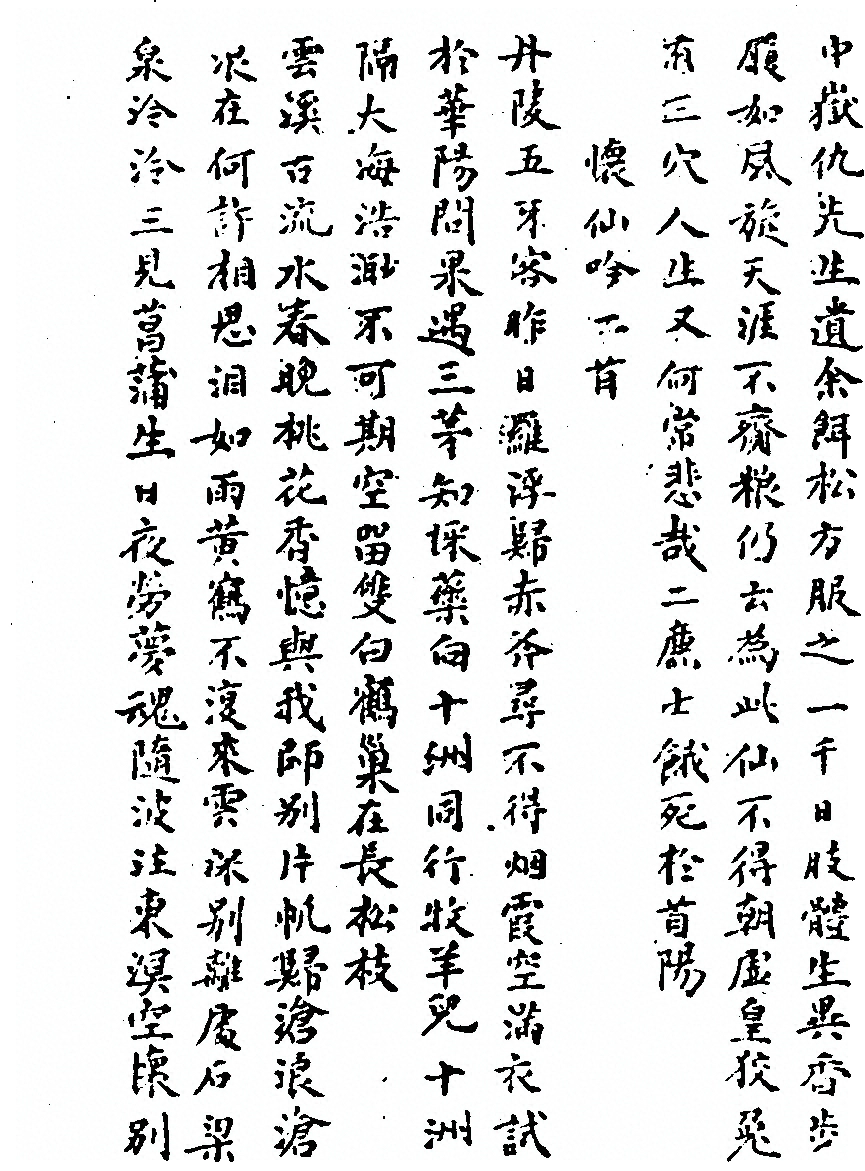 中嶽仇先生遺余餌松方服之一千日肢體生異香步
履如風旋天涯不齎粮仍云為此仙不得朝虛皇狡兔
有三穴人生又何常悲哉二廉士餓死於首陽
懷仙吟二首
丹陵五牙客昨日羅浮歸赤斧尋不得烟霞空滿衣試
於華陽問果遇三茅知採藥向十洲同行牧羊兒十洲
隔大海浩渺不可期空留雙白鶴巢在長松枝
雲溪古流水春晚桃花香憶與我師别片帆歸滄浪滄
浪在何許相思淚如雨黄鶴不復來雲深别離處石梁
泉泠泠三見菖蒲生日夜勞夢魂隨波注東溟空懷别